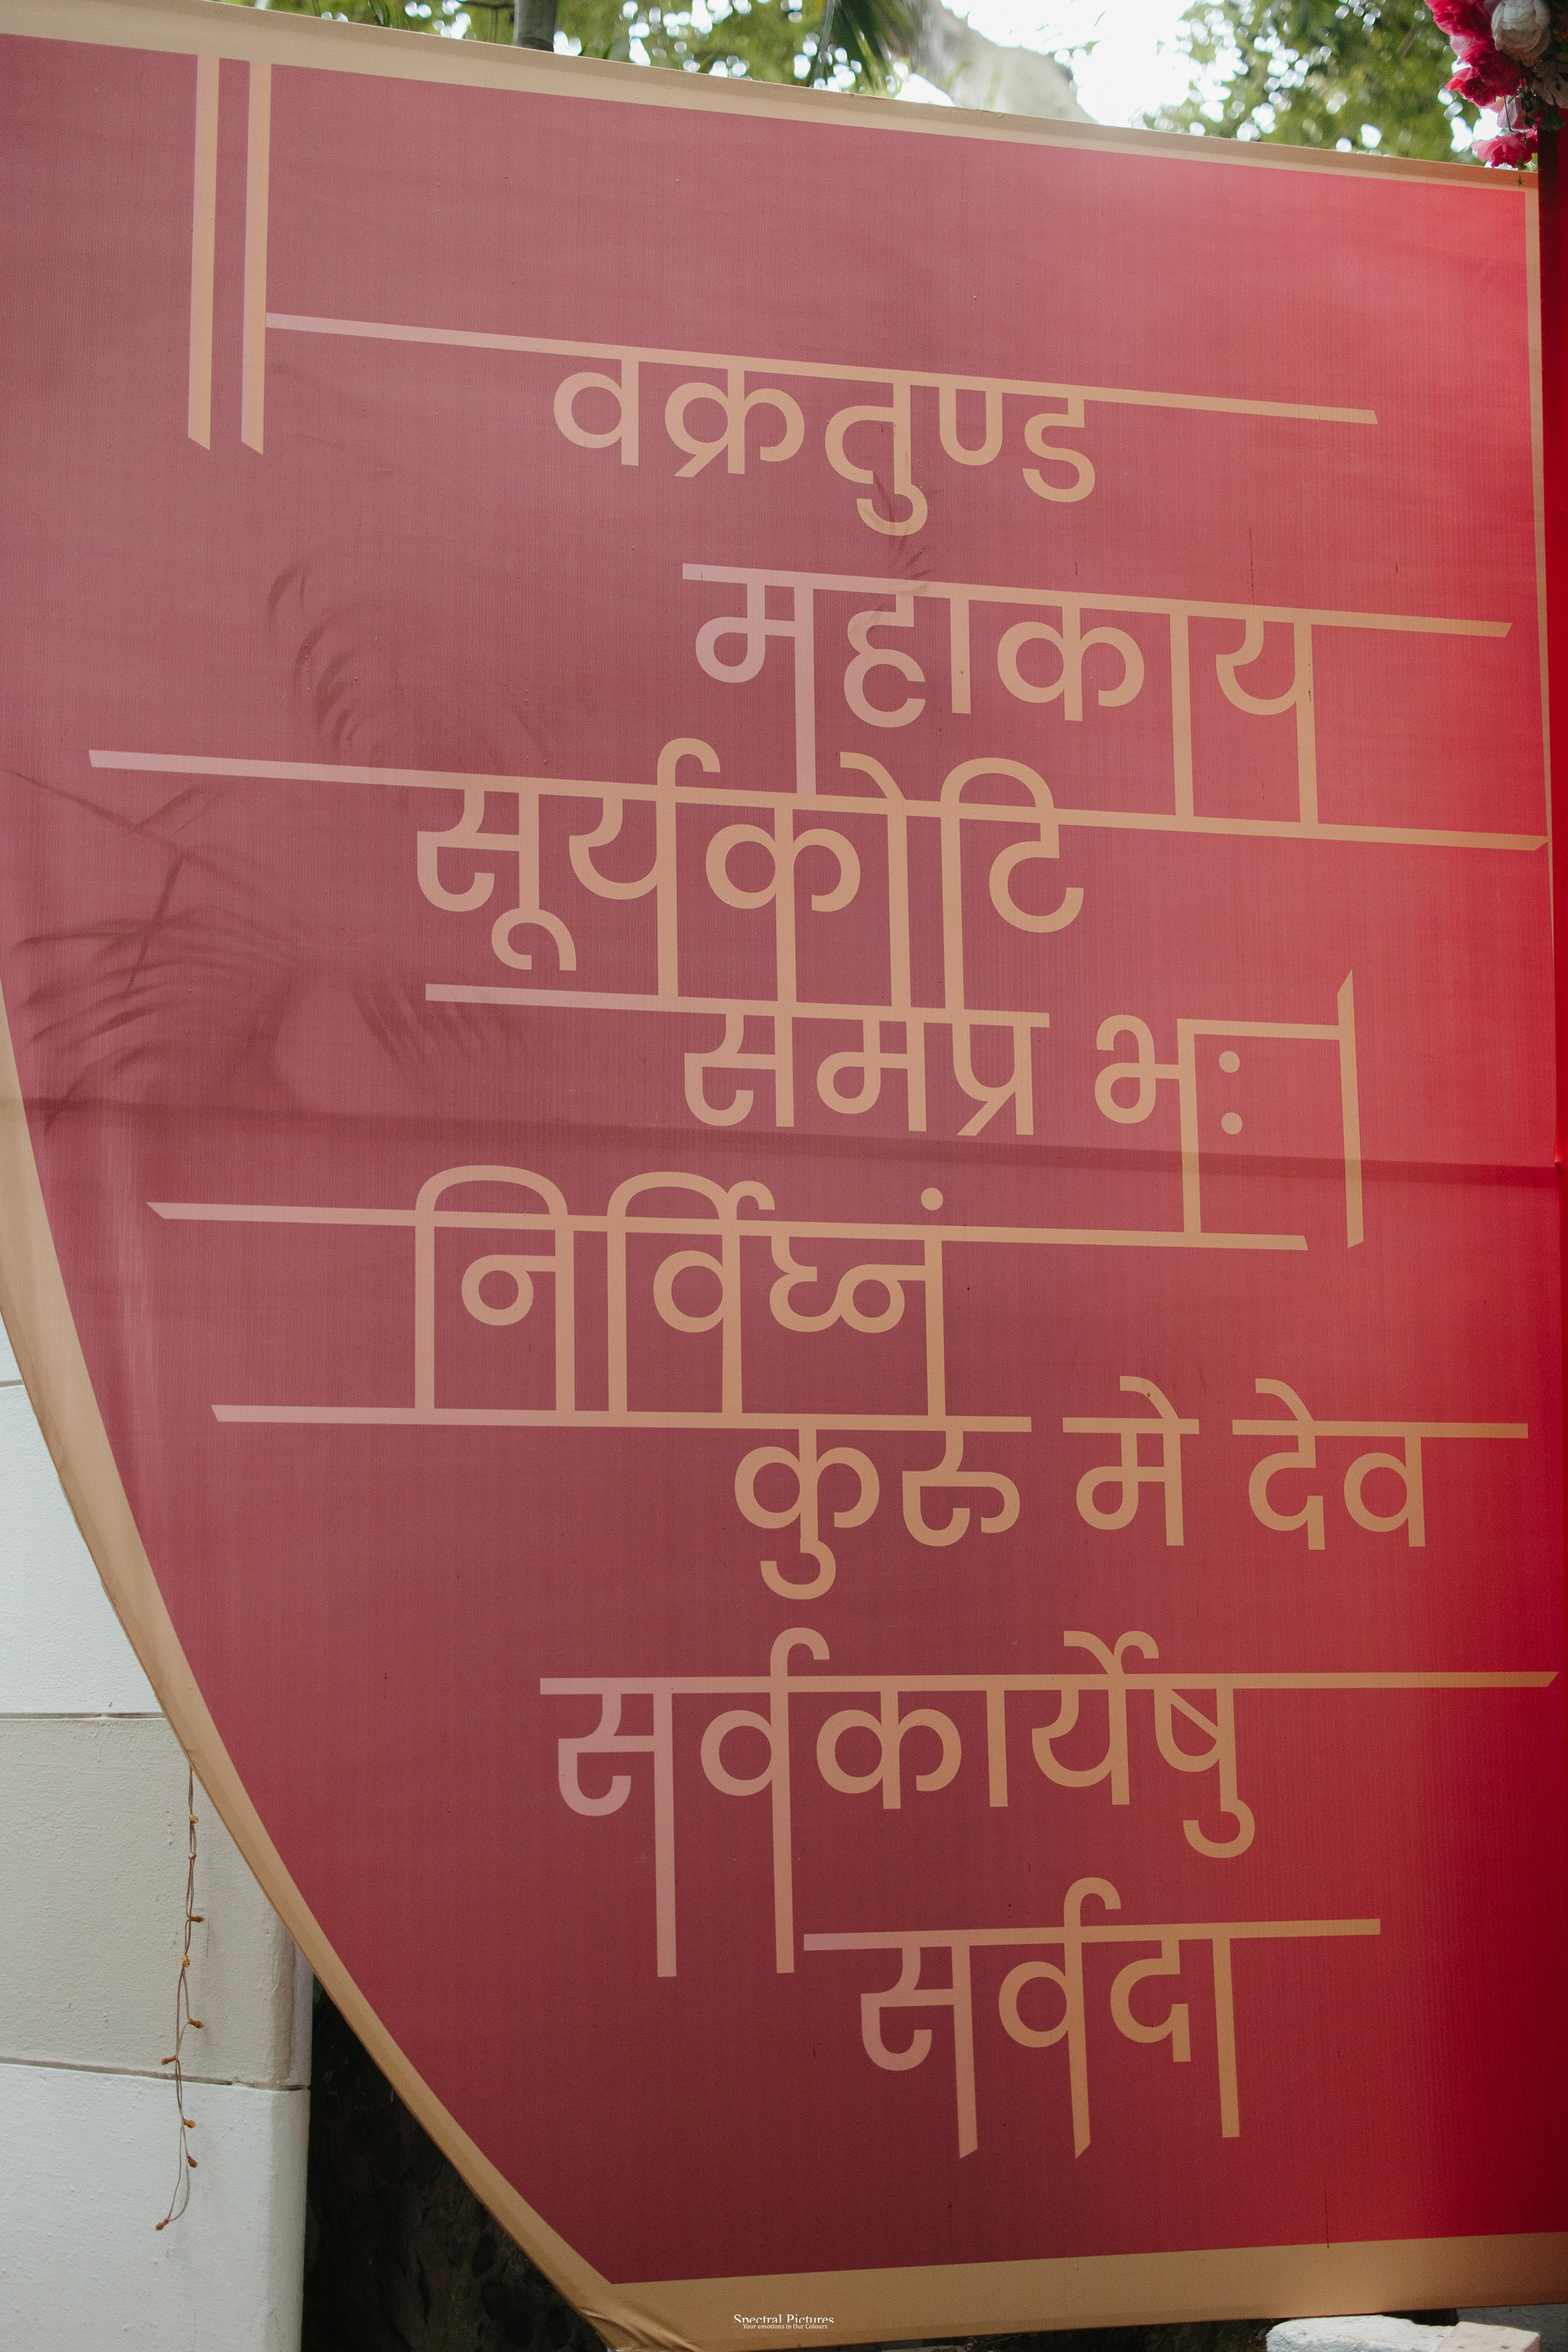 ॥ वक्रतुण्ड
महाकाय
सूर्यकोटि
समप्र भः।
निर्विघ्नं
कुरु मे देव
सर्वकार्येषु
सर्वदा
Spectral Pictures
Your emotions in Our Colours